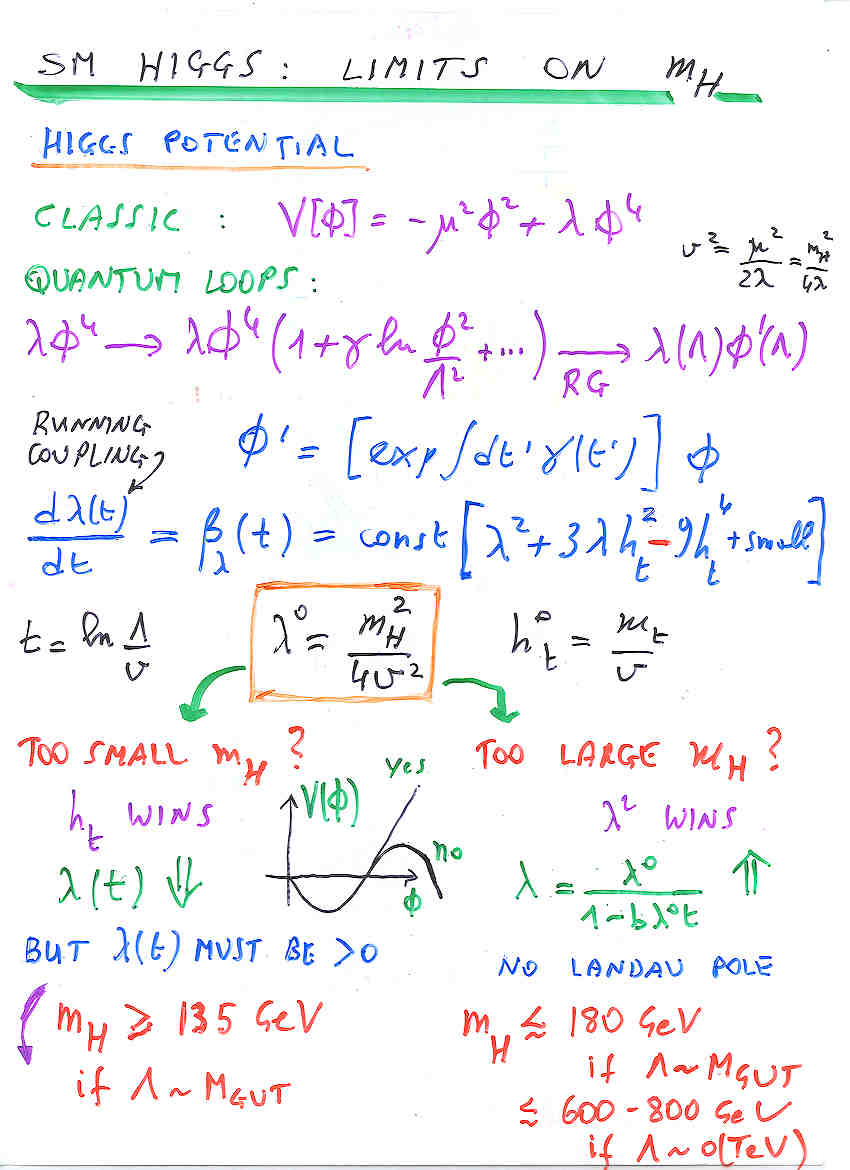 SM HIGGS: LIMITS ON m_H
HIGGS POTENTIAL
CLASSIC : V[ϕ] = -μ²ϕ² + λϕ⁴
v² = μ²/2λ = m_H²/4λ
QUANTUM LOOPS:
λϕ⁴ → λϕ⁴(1 + γ ln ϕ²/Λ² + ...) →_RG λ(Λ)ϕ'(Λ)
RUNNING
COUPLING
ϕ' = [exp∫dt'γ(t')] ϕ
dλ(t)/dt = β_λ(t) = const[λ² + 3λh_t² - 9h_t⁴ + small]
t = ln Λ/v
λ⁰ = m_H²/4v²
h_t⁰ = m_t/v
TOO SMALL m_H?
h_t WINS
λ(t) ⇓
V(ϕ)
yes
no
ϕ
BUT λ(t) MUST BE >0
m_H ≳ 135 GeV
if Λ ~ M_GUT
TOO LARGE m_H?
λ² WINS
λ = λ⁰/1-bλ⁰t ⇑
NO LANDAU POLE
m_H ≲ 180 GeV
if Λ ~ M_GUT
≲ 600 - 800 GeV
if Λ ~ O(TeV)